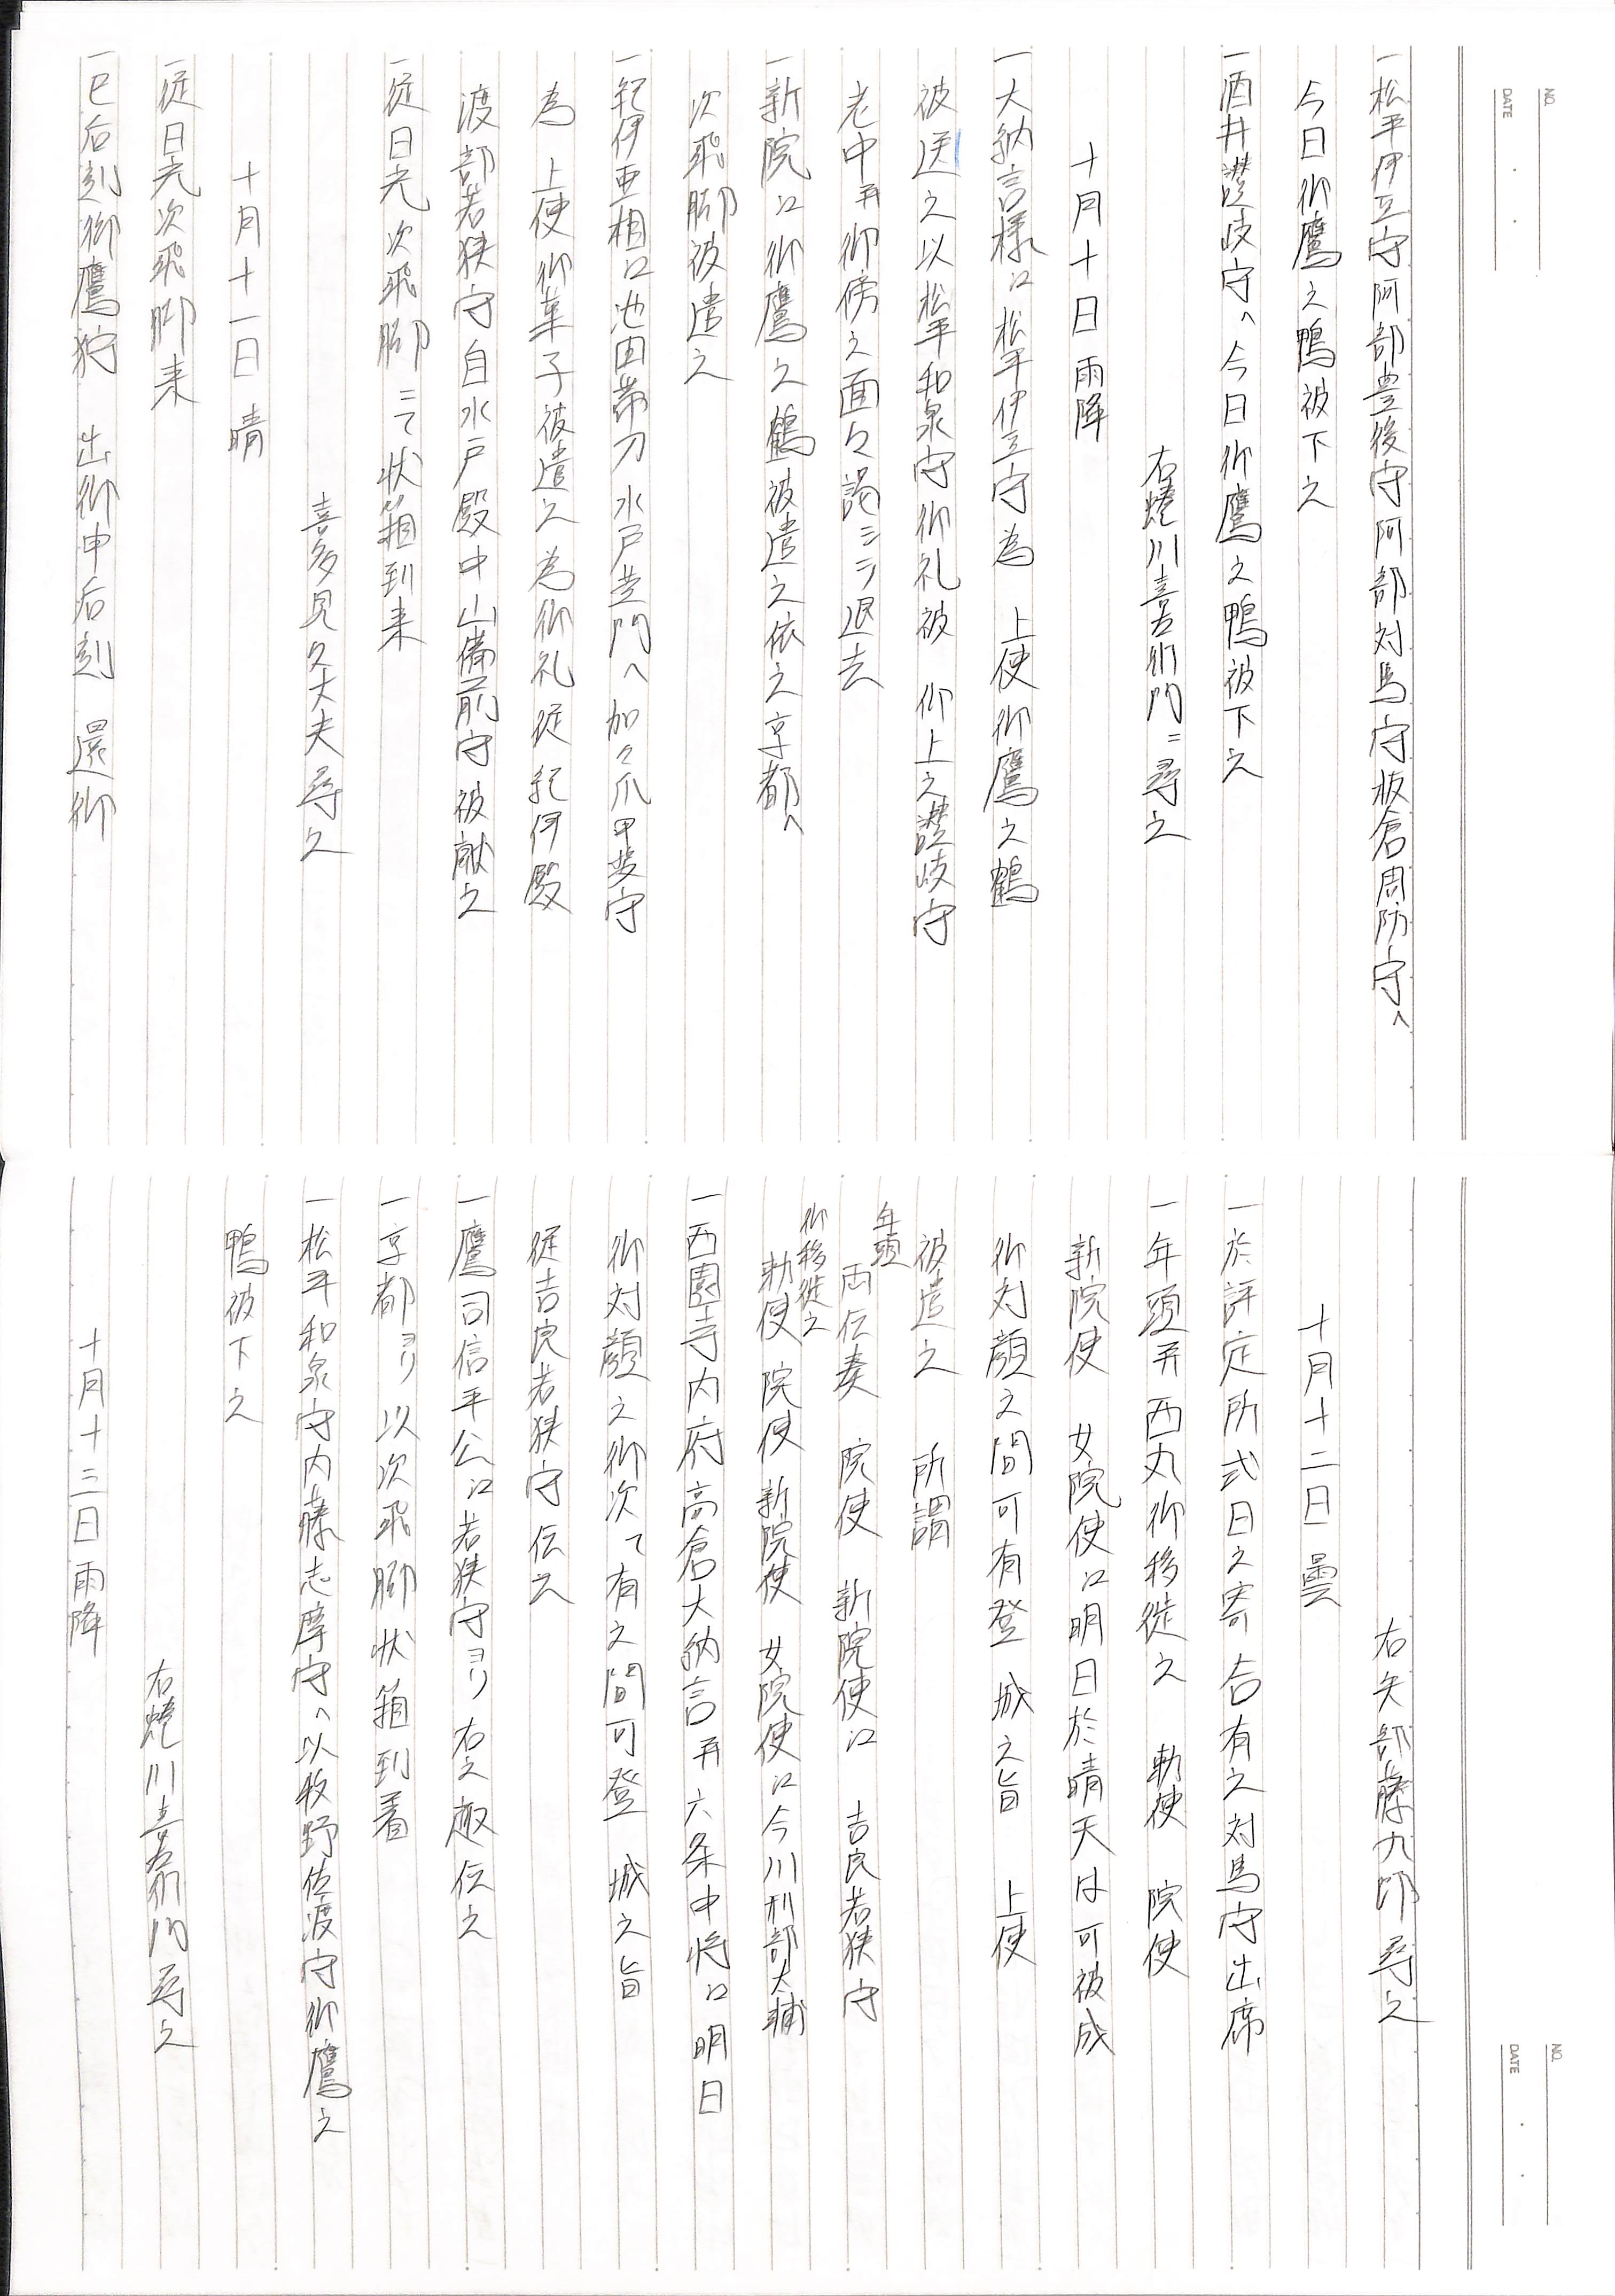 NO.
DATE
一松平伊豆守阿部豊後守阿部対馬守板倉周防守へ
今日御鷹之鴨被下之
一酒井讃岐守へ今日御鷹之鴨被下之
右蜷川喜左衛門ニ尋之
十月十日雨降
一大納言様江松平伊豆守為 上使御鷹之鶴
被送之以松平和泉守御礼被 仰上之讃岐守
老中并御傍之面々謁シテ退去
一新院江御鷹之鶴被遣之依之京都へ
次飛脚被遣之
一紀伊亜相江池田帯刀水戸黄門へ加々爪甲斐守
為 上使御菓子被遣之為御礼従紀伊殿
渡部若狭守自水戸殿中山備前守被献之
一従日光次飛脚ニて状箱到来
喜多見久大夫尋之
十月十一日 晴
一従日光次飛脚来
一巳后刻御鷹狩 出御申后刻 還御
NO.
DATE
右矢部藤九郎尋之
十月十二日 曇
一於評定所式日之寄合有之対馬守出席
一年頭并西丸御移徙之 勅使 院使
新院使 女院使江明日於晴天は可被成
御対顔之間可有登 城之旨 上使
被遣之 所謂
年頭
両伝奏 院使 新院使江 吉良若狭守
御移徙之
勅使 院使 新院使 女院使江今川刑部大輔
一西園寺内府高倉大納言并六条中将江明日
御対顔之御次て有之間可登 城之旨
従吉良若狭守伝之
一鷹司信平公江若狭守ヨリ右之趣伝之
一京都ヨリ以次飛脚状箱到着
一松平和泉守内藤志摩守へ以牧野佐渡守御鷹之
鴨被下之
右蜷川喜左衛門尋之
十月十三日雨降